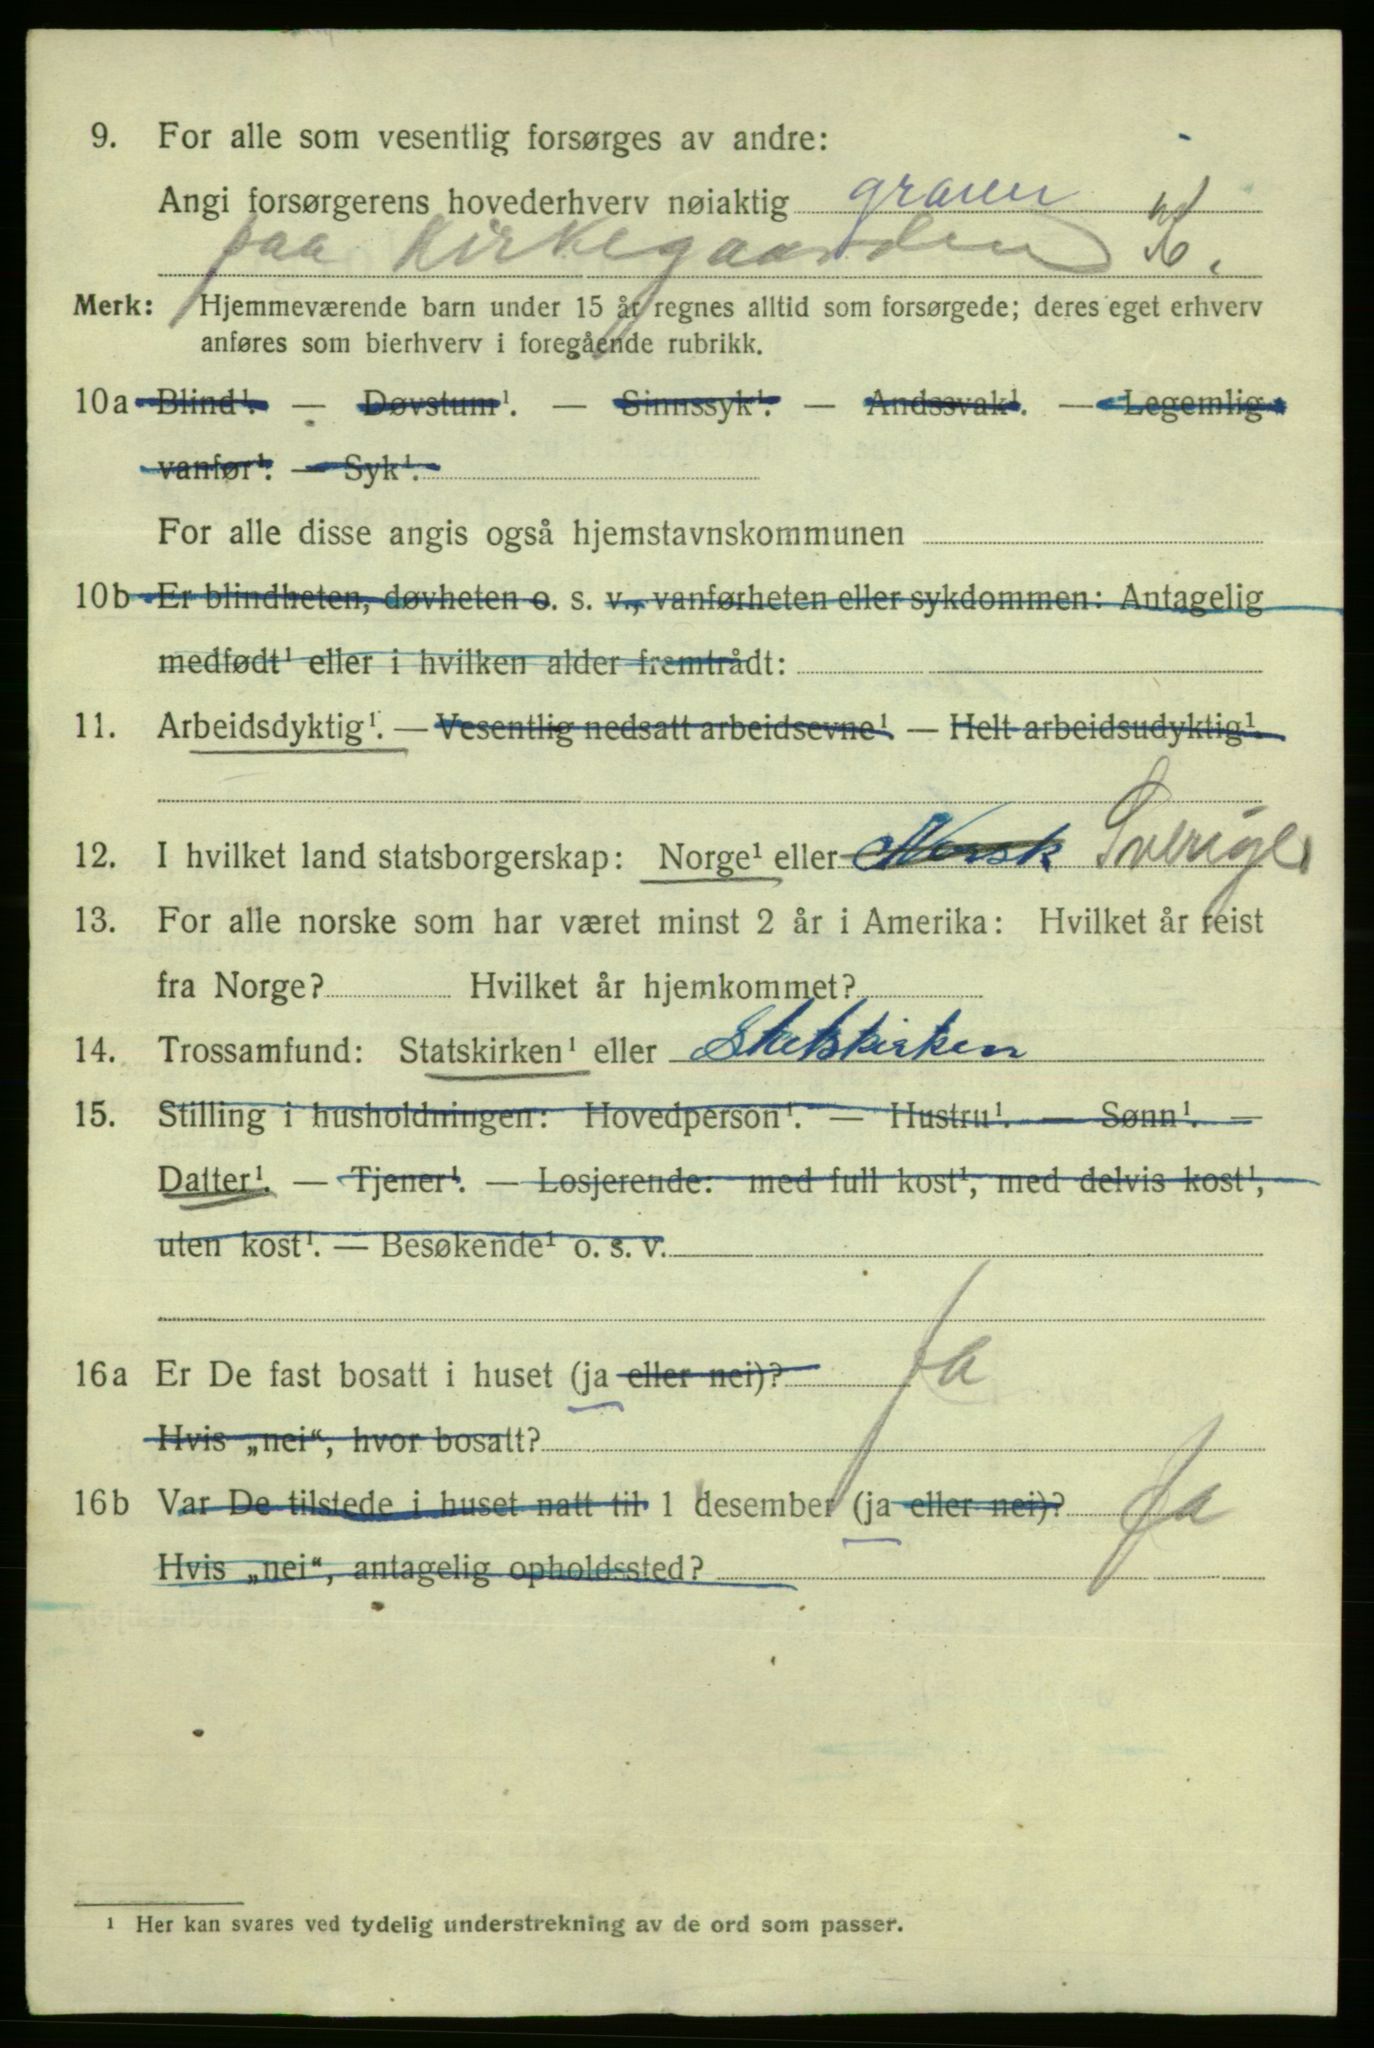 9. For alle som vesentlig forsørges av andre:
Angi forsørgerens hovederhverv nøiaktig graver
paa Kirkegaarden K.
Merk: Hjemmeværende barn under 15 år regnes alltid som forsørgede; deres eget erhverv
anføres som bierhverv i foregående rubrikk.
10a Blind¹. — Døvstum¹. — Sinnssyk¹. — Andssvak¹. — Legemlig
vanfør¹. — Syk¹.
For alle disse angis også hjemstavnskommunen
10b Er blindheten, døvheten o. s. v., vanførheten eller sykdommen: Antagelig
medfødt¹ eller i hvilken alder fremtrådt:
11. Arbeidsdyktig¹. — Vesentlig nedsatt arbeidsevne¹. — Helt arbeidsudyktig¹.
12. I hvilket land statsborgerskap: Norge¹ eller Norsk Sverige
13. For alle norske som har været minst 2 år i Amerika: Hvilket år reist
fra Norge? Hvilket år hjemkommet?
14. Trossamfund: Statskirken¹ eller Statskirken
15. Stilling i husholdningen: Hovedperson¹. — Hustru¹. — Sønn¹. —
Datter¹. — Tjener¹. — Losjerende: med full kost¹, med delvis kost¹,
uten kost¹. — Besøkende¹ o. s. v.
16a Er De fast bosatt i huset (ja eller nei)? Ja
Hvis „nei“, hvor bosatt?
16b Var De tilstede i huset natt til 1 desember (ja eller nei)? Ja
Hvis „nei“, antagelig opholdssted?
¹ Her kan svares ved tydelig understrekning av de ord som passer.